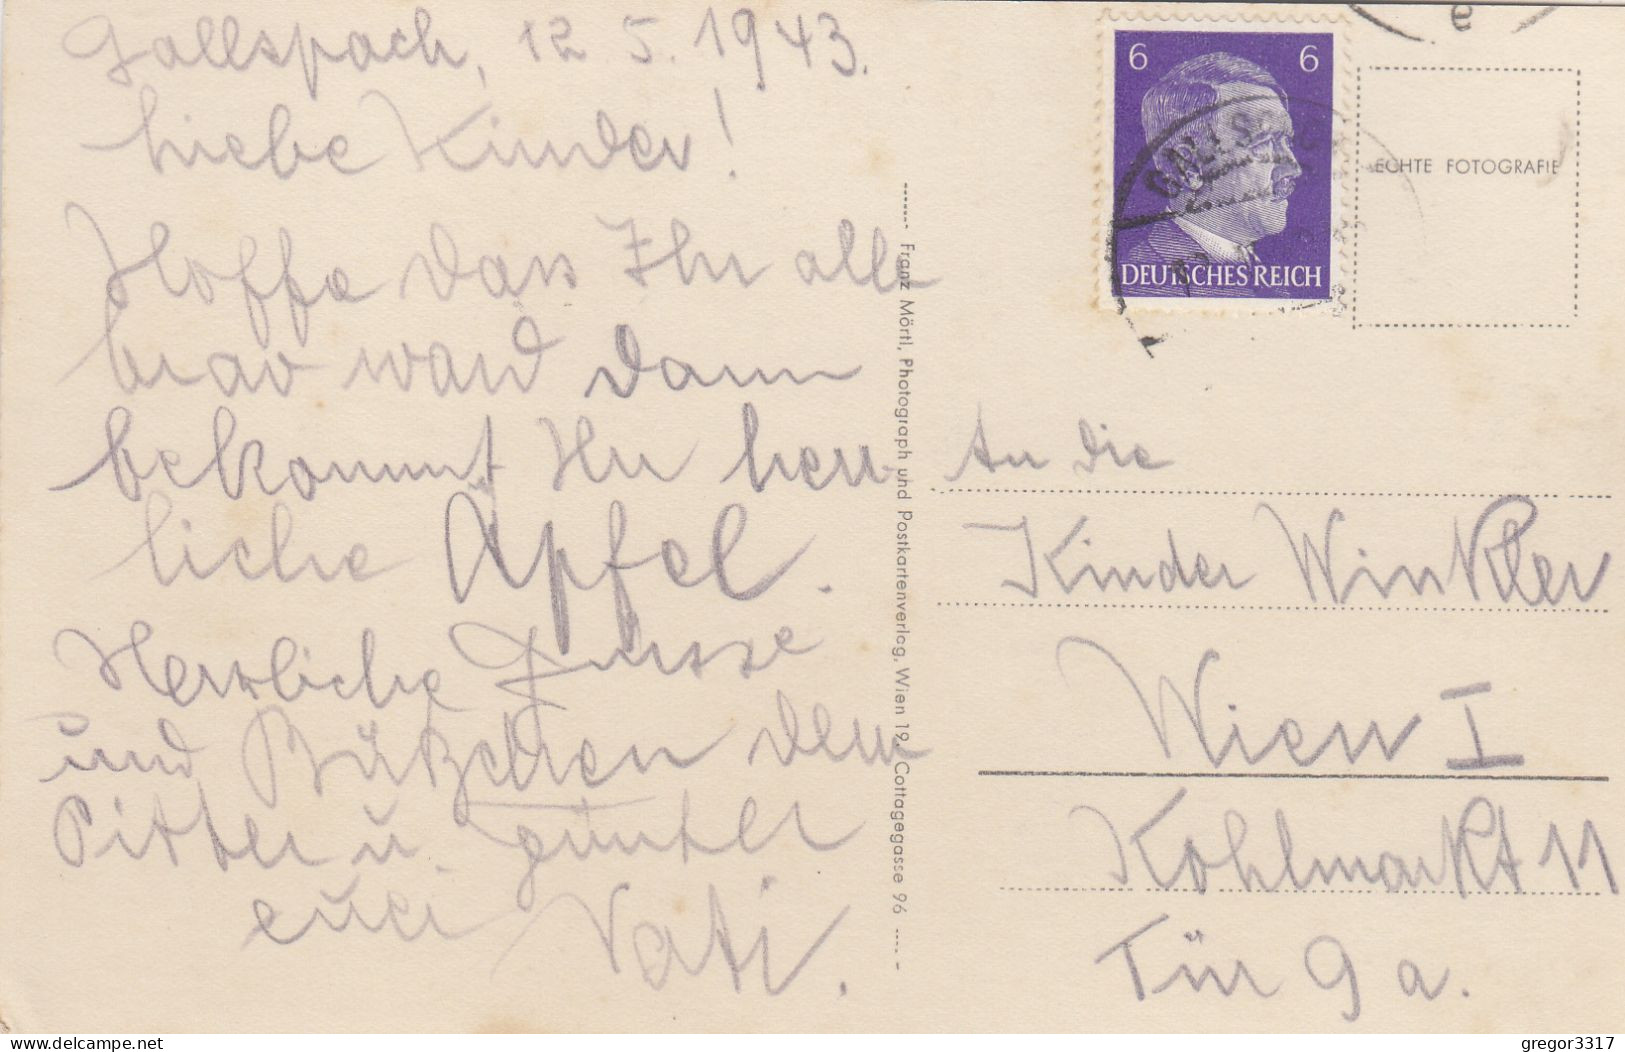 Gallspach, 12. 5. 1943.
Liebe Kinder!
Hoffe dass Ihr alle
brav ward dann
bekommt Ihr herr-
liche Äpfel.
Herzliche Grüsse
und Bützchen dem
Pitter u. Günter
euer
Vati.
Franz Mörtl, Photograph und Postkartenverlag, Wien 19, Cottagegasse 96
6 6
DEUTSCHES REICH
ECHTE FOTOGRAFIE
An die
Kinder Winkler
Wien I
Kohlmarkt 11
Tür 9 a.
www.delcampe.net
gregor3317